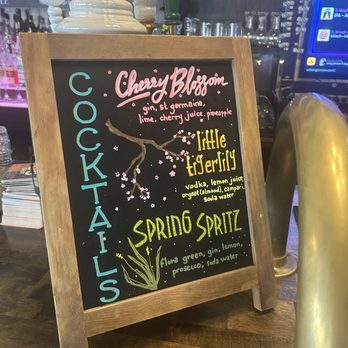 COCKTAILS
Cherry Blossom
gin, st germaine,
lime, cherry juice, pineapple
little
tigerlily
vodka, lemon juice
orgeat (almond), campari,
soda water
SPRING SPRITZ
flora green, gin, lemon,
prosecco, soda water